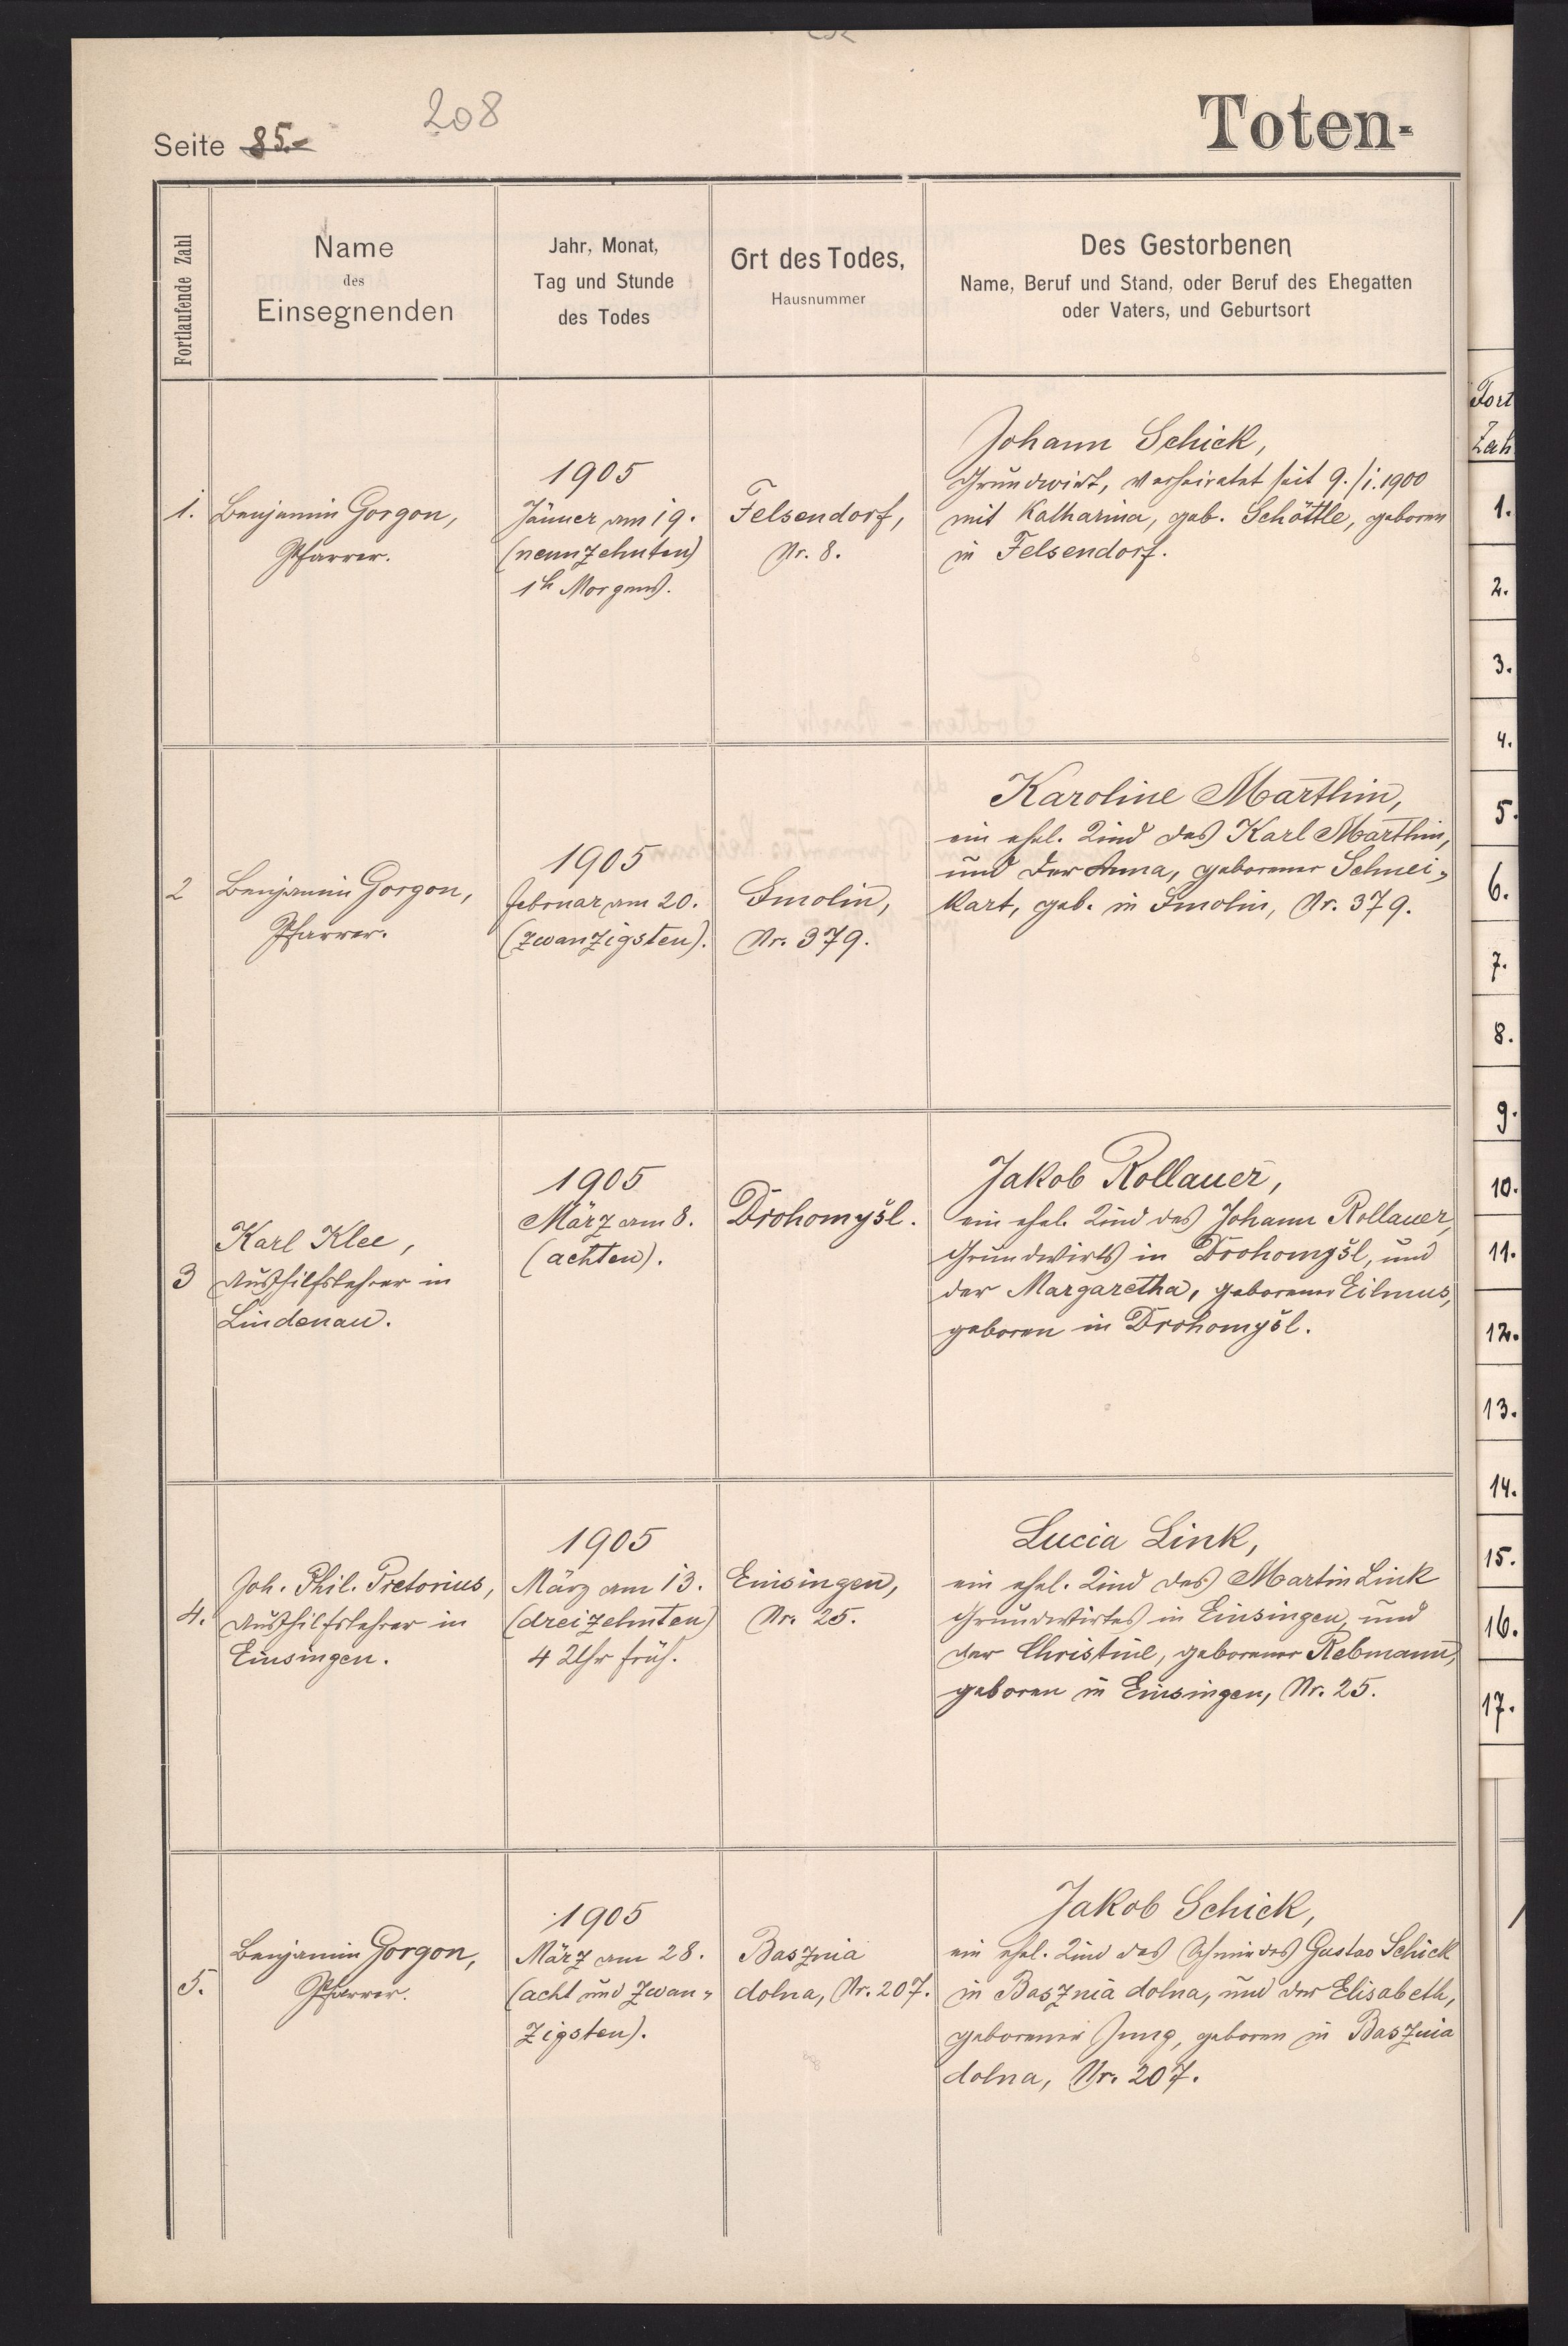 208
Seite 85.
Toten-
Fortlaufende Zahl
Name
des
Einsegnenden
Jahr, Monat,
Tag und Stunde
des Todes
Ort des Todes,
Hausnummer
Des Gestorbenen
Name, Beruf und Stand, oder Beruf des Ehegatten
oder Vaters, und Geburtsort
1.
Benjamin Gorgon,
Pfarrer.
1905
Jänner, am 19.
(neunzehnten)
1h Morgens.
Felsendorf,
Nr. 8.
Johann Schick,
Grundwirt, verheiratet seit 9./i. 1900
mit Katharina, geb. Schöttle, geboren
in Felsendorf.
2
Benjamin Gorgon,
Pfarrer.
1905
Februar am 20.
(zwanzigsten).
Smolin,
Nr. 379.
Karoline Marthin,
ein ehel. Kind des Karl Marthin,
und der Anna, geborener Schnei-
kart, geb. in Smolin, Nr. 379.
3
Karl Klee,
Aushilfslehrer in
Lindenau.
1905
März am 8.
(achten).
Drohomyśl.
Jakob Rollauer,
ein ehel. Kind des Johann Rollauer,
Grundwirts in Drohomyśl, und
der Margaretha, geborener Eilmus,
geboren in Drohomyśl.
4.
Joh. Phil. Pretorius,
Aushilfslehrer in
Einsingen.
1905
März am 13.
(dreizehnten)
4 Uhr früh.
Einsingen,
Nr. 25.
Lucia Link,
ein ehel. Kind des Martin Link
Grundwirtes in Einsingen, und
der Christine, geborener Rebmann,
geboren in Einsingen, Nr. 25.
5.
Benjamin Gorgon,
Pfarrer.
1905
März am 28.
(acht und zwan-
zigsten).
Basznia
dolna, Nr. 207.
Jakob Schick,
ein ehel. Kind des Schmiedes Gustav Schick
in Basznia dolna, und der Elisabeth,
geborener Jung, geboren in Basznia
dolna, Nr. 207.
Fort
Zah
1.
2.
3.
4.
5.
6.
7.
8.
9.
10.
11.
12.
13.
14.
15.
16.
17.